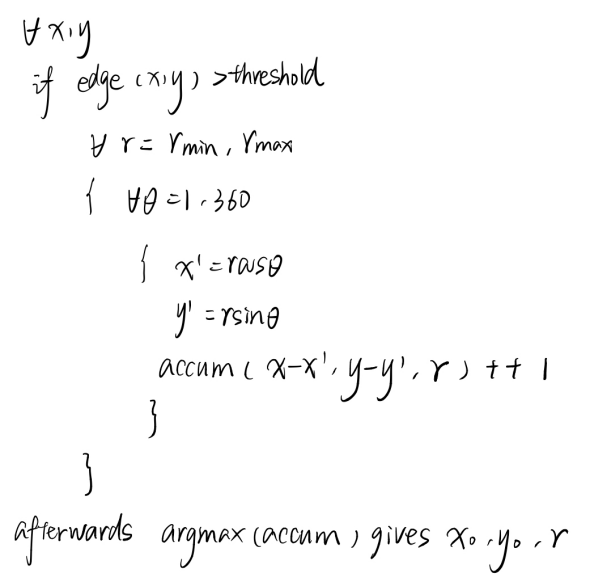 ∀ x,y
if edge (x,y) >threshold
∀ r = rmin, rmax
{ ∀θ =1,360
{ x' = rcosθ
y' = rsinθ
accum( x-x', y-y', r ) ++ 1
}
}
afterwards argmax(accum) gives x₀,y₀,r